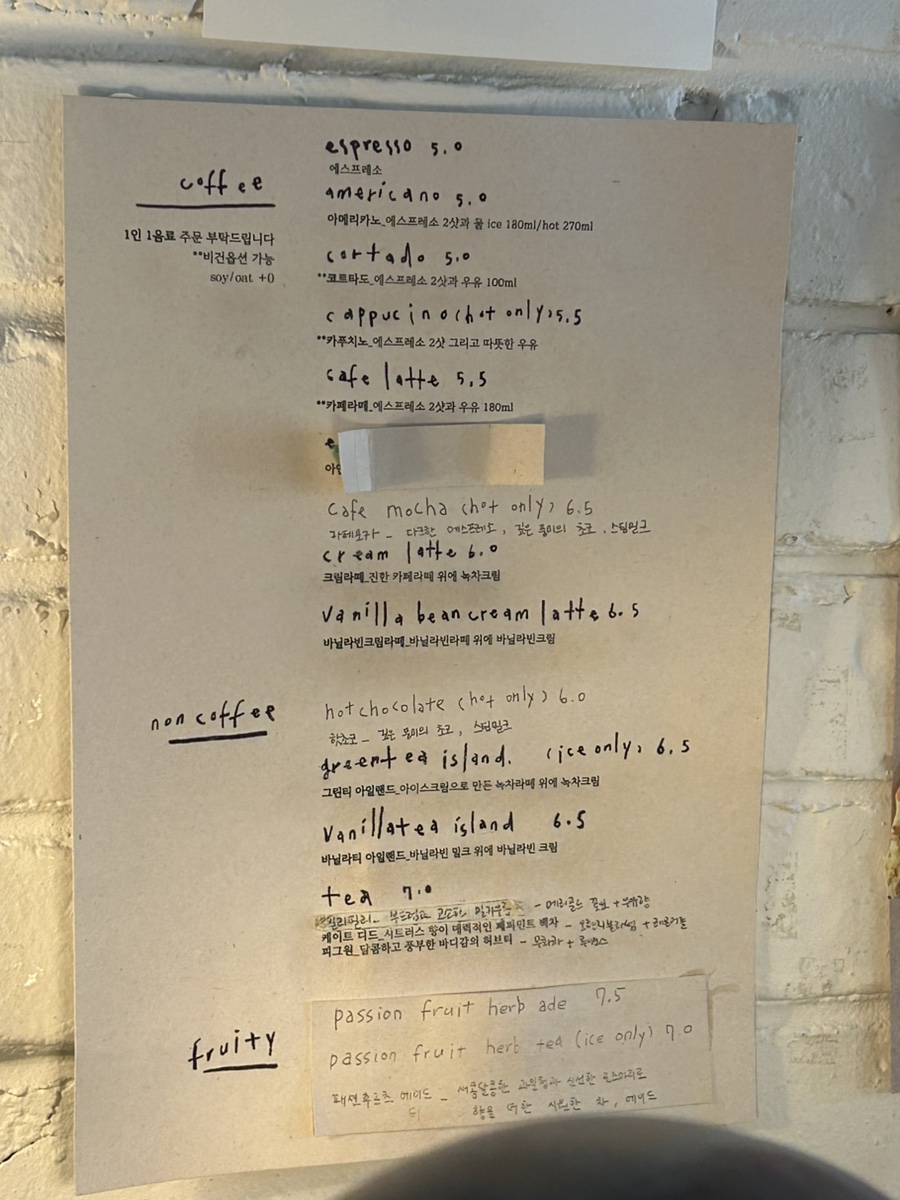 coffee
1인 1음료 주문 부탁드립니다
**비건옵션 가능
soy/oat +0
espresso 5.0
에스프레소
americano 5.0
아메리카노_에스프레소 2샷과 물 ice 180ml/hot 270ml
cortado 5.0
**코르타도_에스프레소 2샷과 우유 100ml
cappucino (hot only) 5.5
**카푸치노_에스프레소 2샷 그리고 따뜻한 우유
cafe latte 5.5
**카페라떼_에스프레소 2샷과 우유 180ml
cafe mocha (hot only) 6.5
카페모카 - 다크한 에스프레소, 깊은 풍미의 초코, 스팀밀크
cream latte 6.0
크림라떼_진한 카페라떼 위에 녹차크림
vanilla bean cream latte 6.5
바닐라빈크림라떼_바닐라빈라떼 위에 바닐라빈크림
non coffee
hot chocolate (hot only) 6.0
핫초코 - 깊은 풍미의 초코, 스팀밀크
greentea island. (ice only) 6.5
그린티 아일랜드_아이스크림으로 만든 녹차라떼 위에 녹차크림
vanillatea island 6.5
바닐라티 아일랜드_바닐라빈 밀크 위에 바닐라빈 크림
tea 7.0
필리필리 - 부드럽고 고소한 - 메리골드 꽃잎 +
케이트 디드_시트러스 향이 매력적인 페퍼민트 백차 - 오렌지블라썸 + 레몬머틀
피그원_달콤하고 풍부한 바디감의 허브티 - 무화과 +
fruity
passion fruit herb ade 7.5
passion fruit herb tea (ice only) 7.0
패션후르츠 에이드 - 새콤달콤한 과일향과 신선한 로즈마리로
티 향을 더한 시원한 차, 에이드